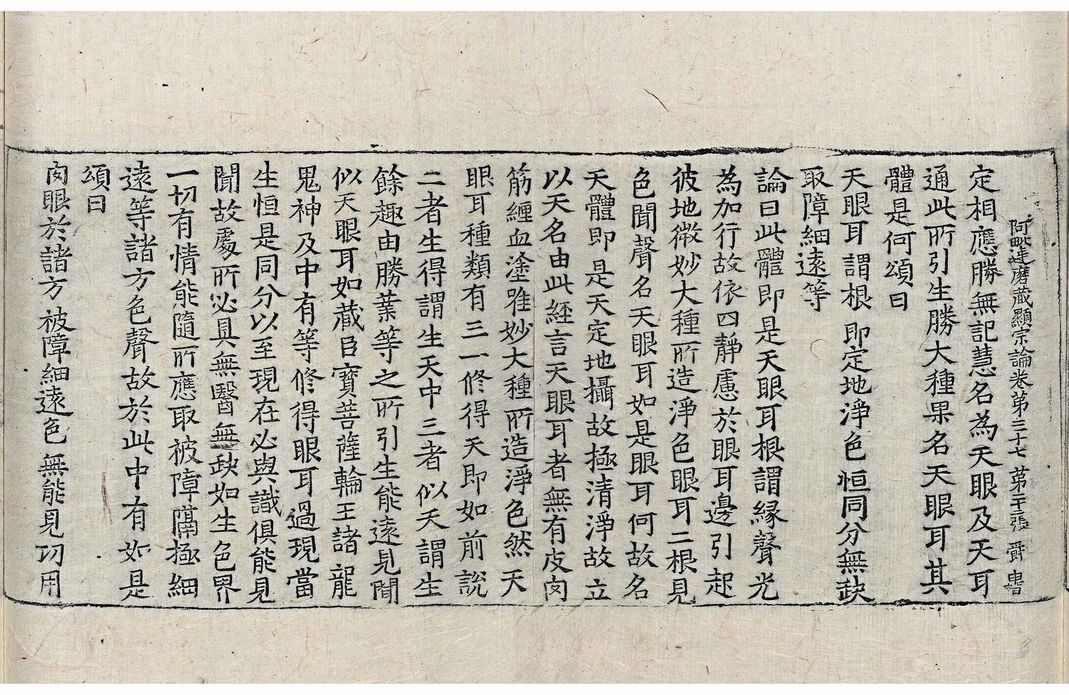 阿毗達磨藏顯宗論卷第三十七 第二十二張 爵 書
定相應勝無記慧名為天眼及天耳
通此所引生勝大種果名天眼耳其
體是何頌曰
天眼耳謂根 即定地淨色 恒同分無缺
取障細遠等
論曰此體即是天眼耳根謂緣聲光
為加行故依四靜慮於眼耳邊引起
彼地微妙大種所造淨色眼耳二根見
色聞聲名天眼耳如是眼耳何故名
天體即是天定地攝故極清淨故立
以天名由此經言天眼耳者無有皮肉
筋纏血塗唯妙大種所造淨色然天
眼耳種類有三一修得天即如前說
二者生得謂生天中三者似天謂生
餘趣由勝業等之所引生能遠見聞
似天眼耳如藏臣寶菩薩輪王諸龍
鬼神及中有等修得眼耳過現當
生恒是同分以至現在必與識俱能見
聞故處所必具無翳無缺如生色界
一切有情能隨所應取被障隔極細
遠等諸方色聲故於此中有如是
頌曰
肉眼於諸方 被障細遠色 無能見功用